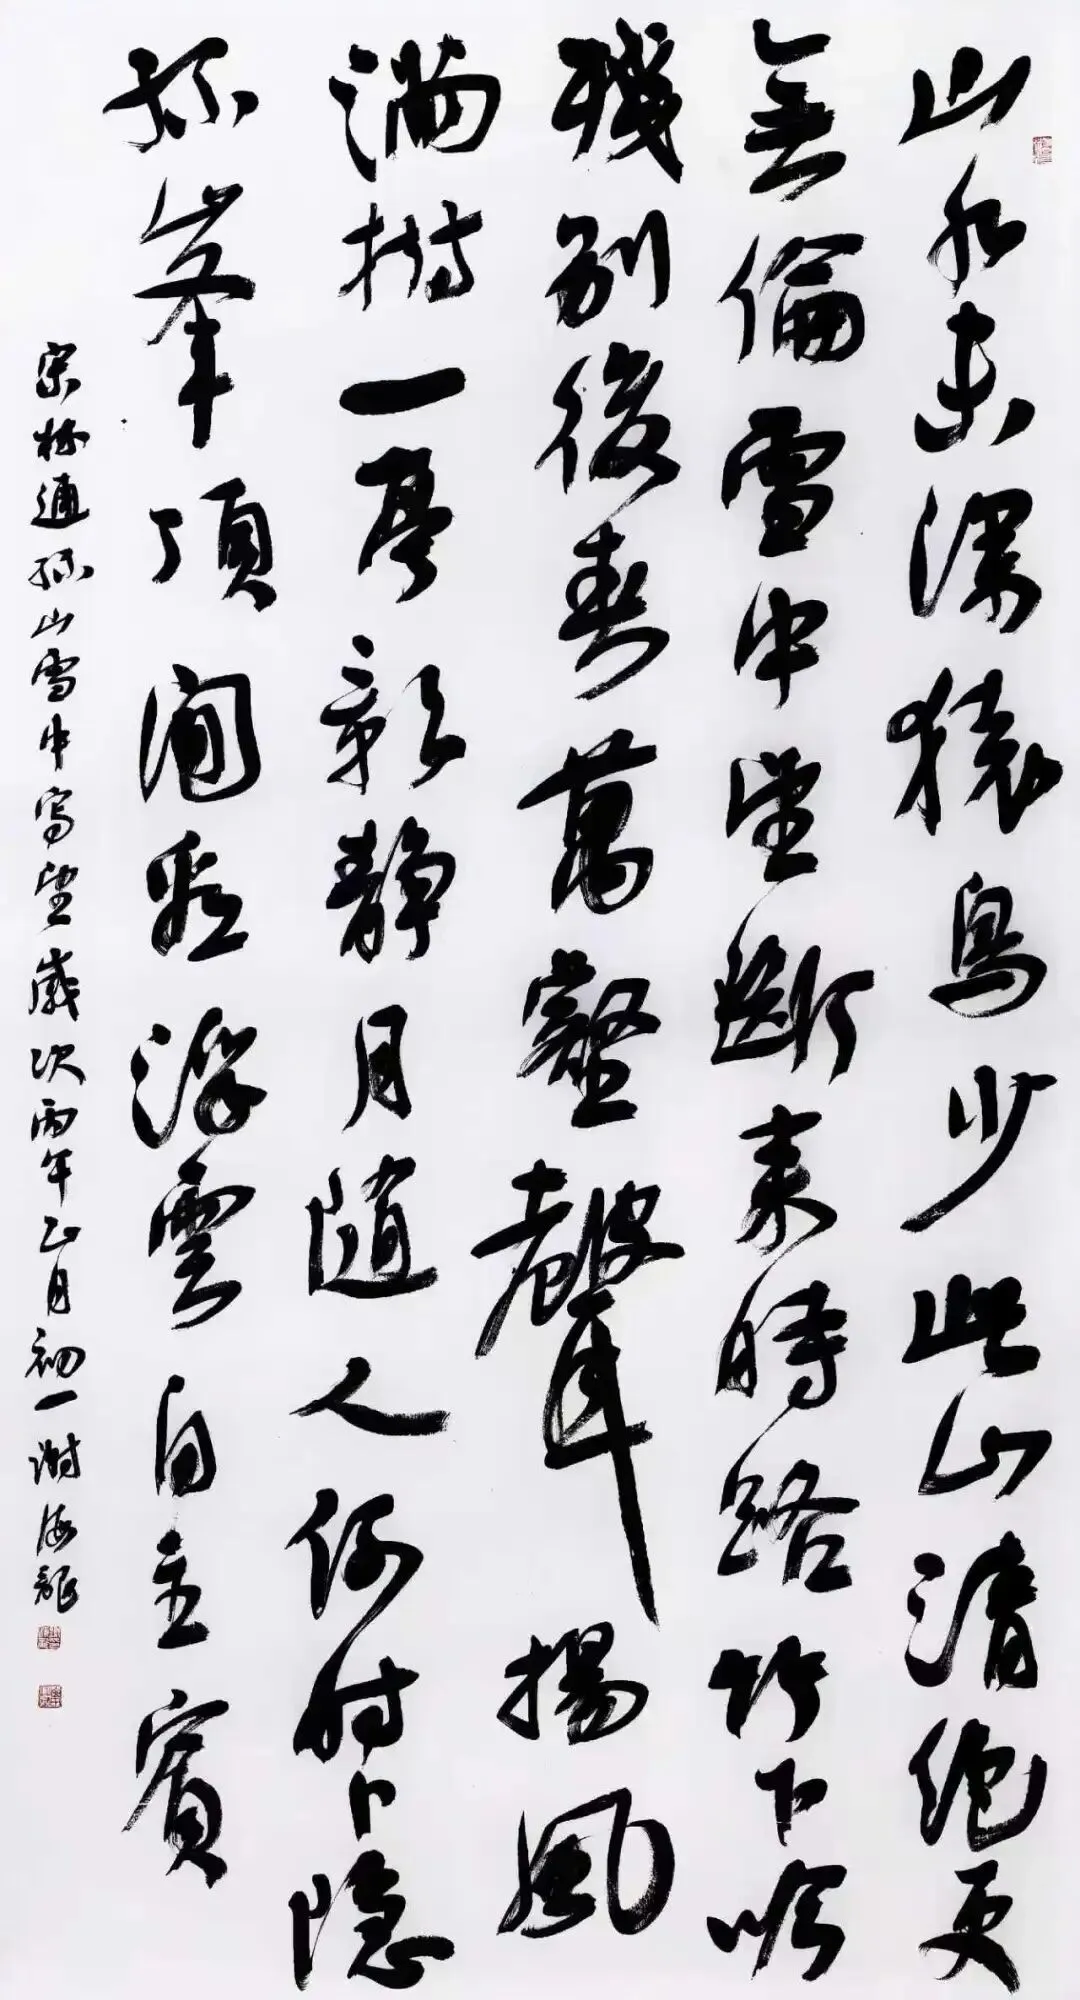 山水未深猿鳥少此山清絕更
無倫雪中望斷來時路竹下吟
殘別後春萬壑聲揚風
滿樹一亭影靜月隨人何時卜隱
孤峯頂閒看浮雲自主賓
宋林逋孤山雪中寫望歲次丙午正月初一謝海龍